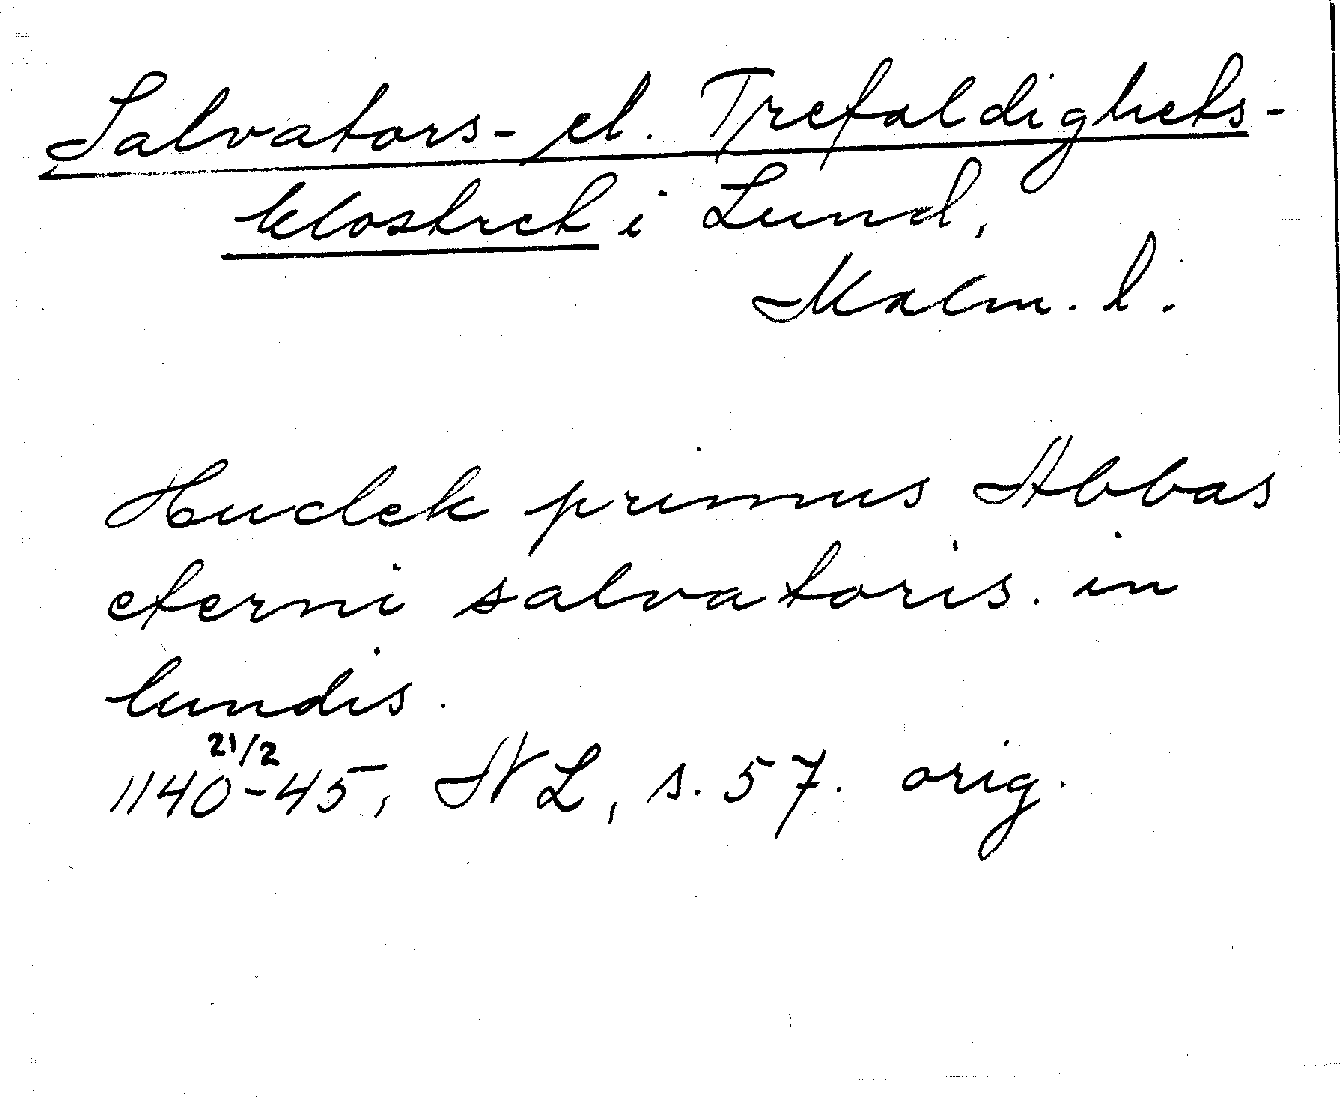 Salvators- el. Trefaldighets-
klostret i Lund,
Malm. l.
Huclek primus Abbas
eterni salvatoris. in
lundis.
21/2
1140-45, NL, s. 57. orig.